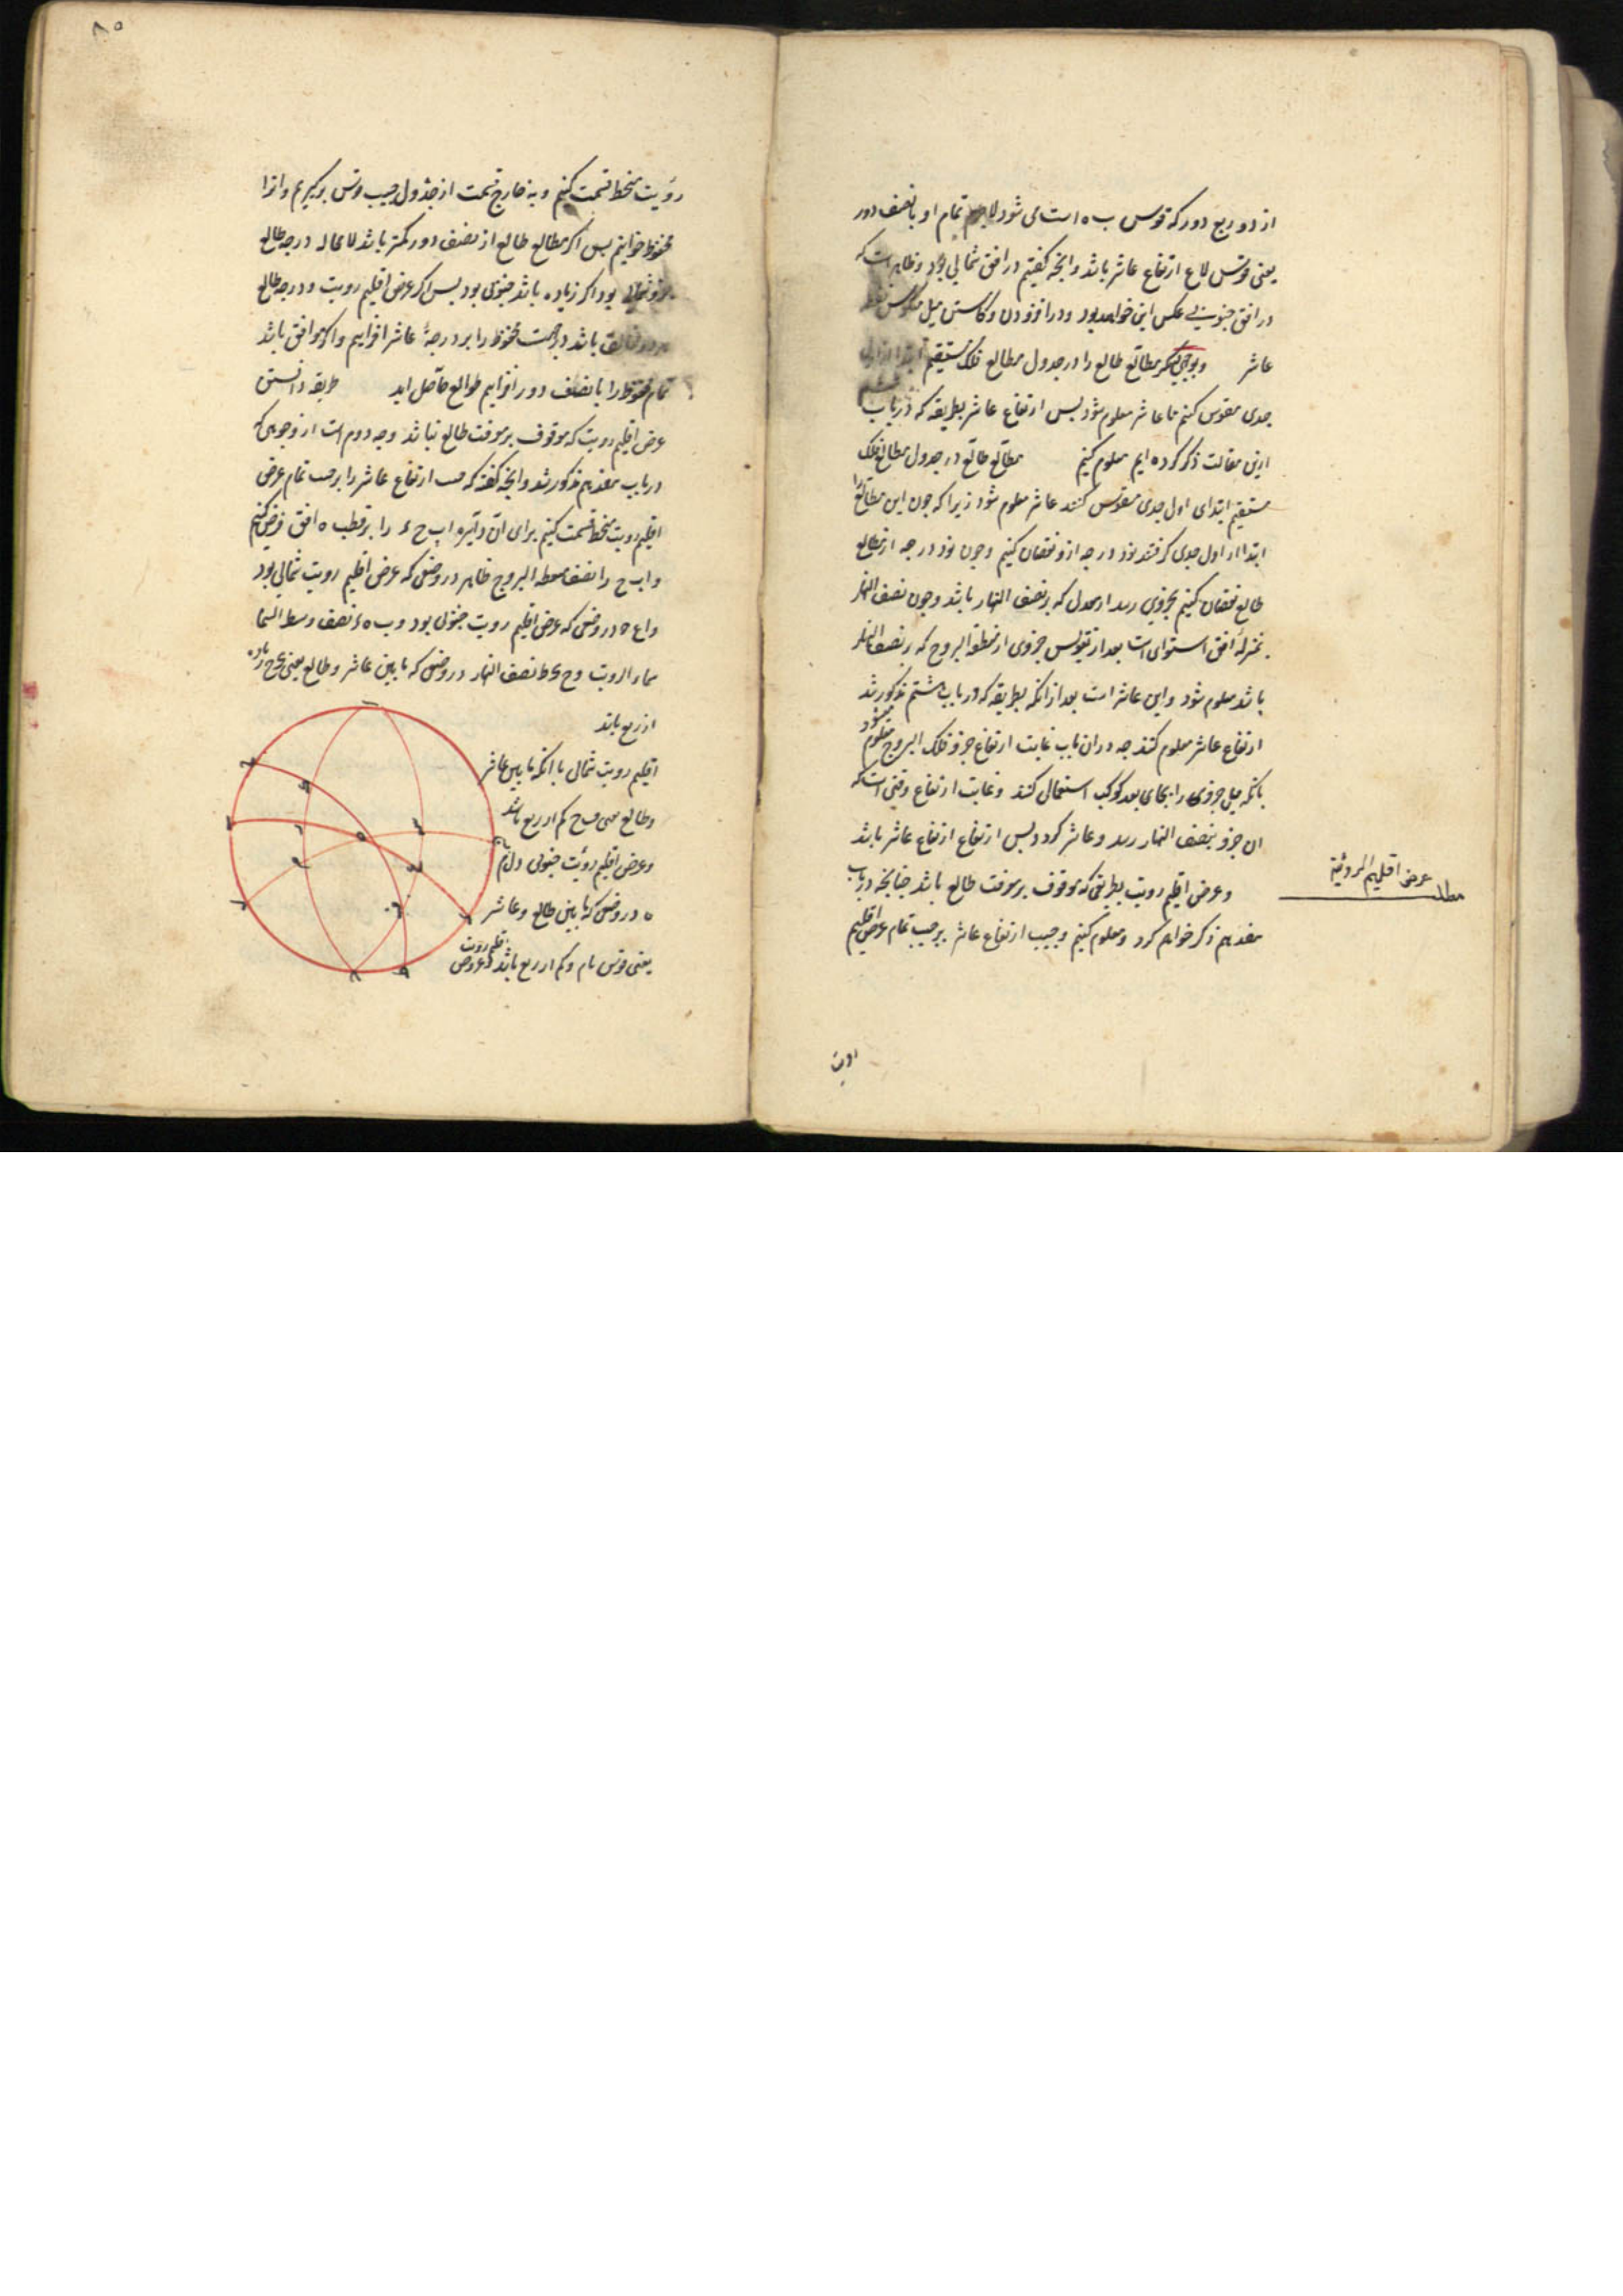 از دو ربع دور که قوس ب ه است می شود تمام او با نصف دور
یعنی قوس لاع ارتفاع عاشر باشد وانچه کفتیم در افق شمالی بود و ظاهر است که
در افق جنوبی عکس این خواهد بود ودر افزودن وکاستن میل
عاشر وبوجهی دیکر مطالع طالع را در جدول مطالع فلک مستقیم
جدی مقوس کنیم تا عاشر معلوم شود بس ارتفاع عاشر بطریقه که در باب
ازین مقالت ذکر کرده ایم معلوم کنیم مطالع طالع در جدول مطالع فلک
مستقیم ابتدای اول جدی مقوس کنند عاشر معلوم شود زیرا که جون این مطالع را
ابتدا از اول جدی کرفتند نود درجه ازو نقصان کنیم وجون نود درجه از مطالع
طالع نقصان کنیم بجزوی رسد از معدل که بر نصف النهار باشد وجون نصف النهار
بمنزلهٔ افق استوای است بعد از تقویس جزوی از منطقة البروج که بر نصف النهار
باشد معلوم شود واین عاشر است بعد ازانکه بطریقه که در باب هشتم مذکور شد
ارتفاع عاشر معلوم کنند جه دران باب غایت ارتفاع جزو فلک البروج معلوم میشود
بانکه میل جزوی را بجای بعد کوکب استعمال کنند وغایت ارتفاع وقتی است که
ان جزو بنصف النهار رسد وعاشر کردد وبس ارتفاع ارتفاع عاشر باشد
وعرض اقلیم رویت بطریقی که موقوف بر معرفت طالع باشد جنانجه در باب
هفدهم ذکر خواهم کرد ومعلوم کنیم وجیب ارتفاع عاشر بر جیب تمام عرض اقلیم
رویت
مطلب
عرض اقلیم الرویة
٨٥
رؤیت منحط قسمت کنیم و به خارج قسمت از جدول جیب قوس برکیریم وانرا
محفوظ خوانیم بس اکر مطالع طالع از نصف دور کمتر باشد لامحاله درجه طالع
بود اکر زیاده باشد جنوبی بود بس اکر عرض اقلیم رویت ودرجه طالع
باشد در جهت محفوظ را بر درجهٔ عاشر افزاییم واکر موافق باشد
تمام محفوظ را با نصف دور افزایم طوالع حاصل اید طریقه دانستن
عرض اقلیم رویت که موقوف بر معرفت طالع نباشد وجه دوم است از وجوهی که
در باب هفدهم مذکور شد وانجه کفته که جیب ارتفاع عاشر را بر جیب تمام عرض
اقلیم رویت منحط قسمت کنیم برای ان دایره اب ح ء را بر قطب ه افق فرض کنیم
واب ح را نصف منطقه البروج ظاهر در وضعی که عرض اقلیم رویت شمالی بود
واع ح در وضعی که عرض اقلیم رویت جنوبی بود وب ه ء نصف وسط السما
سماء الرویت وح ی ط نصف النهار در وضعی که مابین عاشر وطالع یعنی ی ح زیاده
از ربع باشد
اقلیم رویت شمالی با انکه مابین عاشر
وطالع یعنی ح کم از ربع باشد
وعرض اقلیم رؤیت جنوبی ول م
ه در وضعی که مابین طالع وعاشر
یعنی قوس وکم از ربع باشد وعرض اقلیم رویت